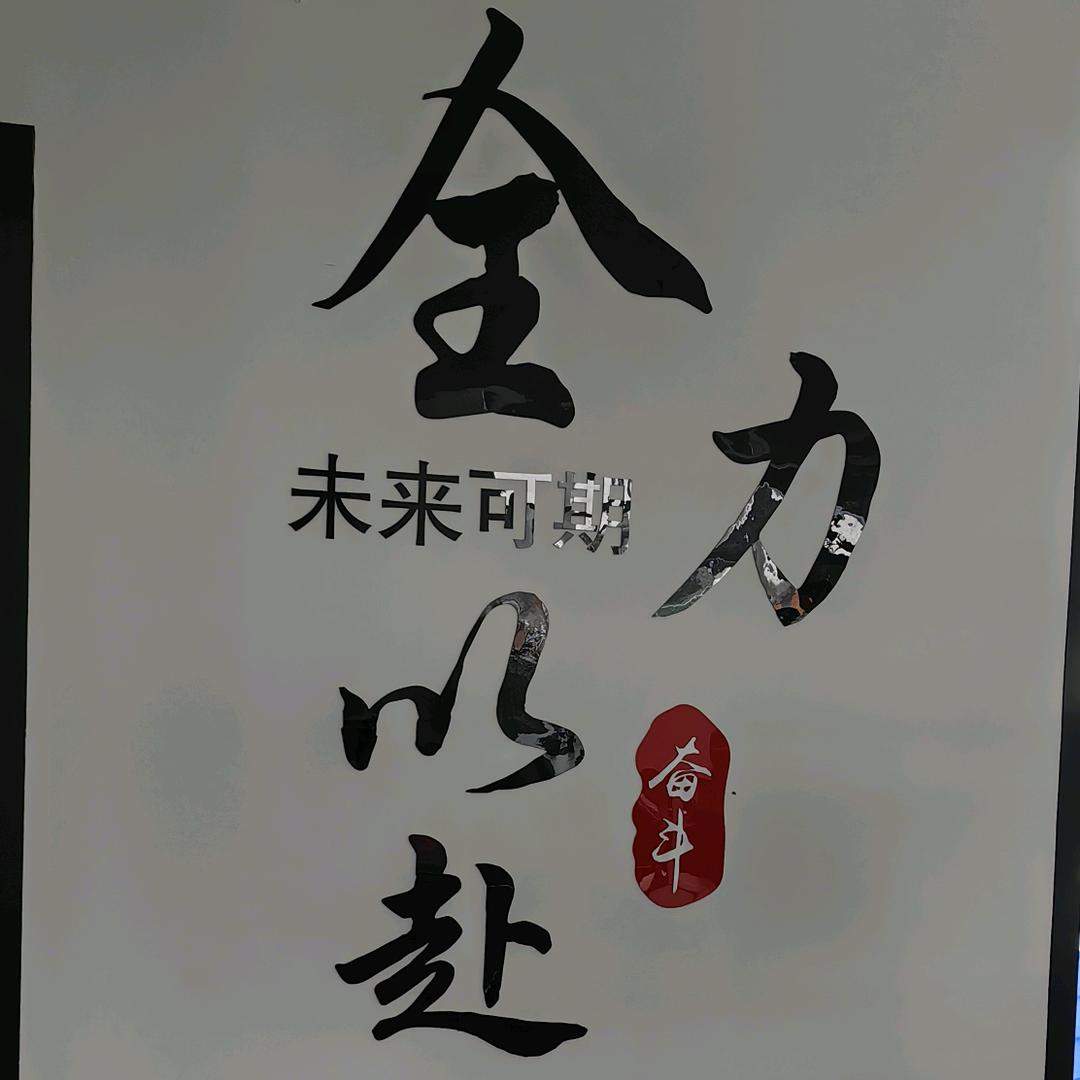 全力以赴
未来可期
奋斗